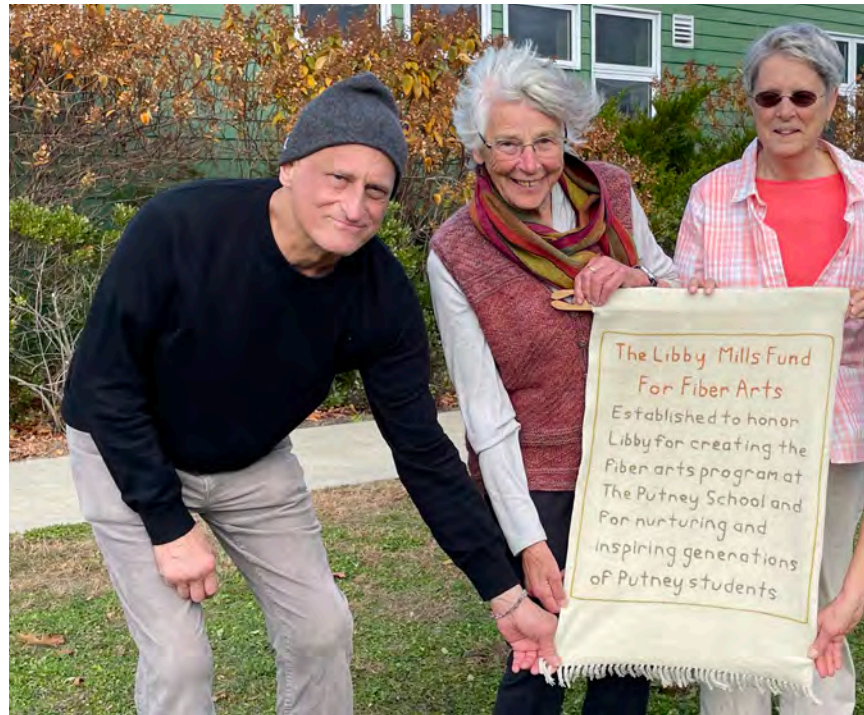 The Libby Mills Fund
For Fiber Arts
Established to honor
Libby for creating the
Fiber arts program at
The Putney School and
For nurturing and
inspiring generations
of Putney students